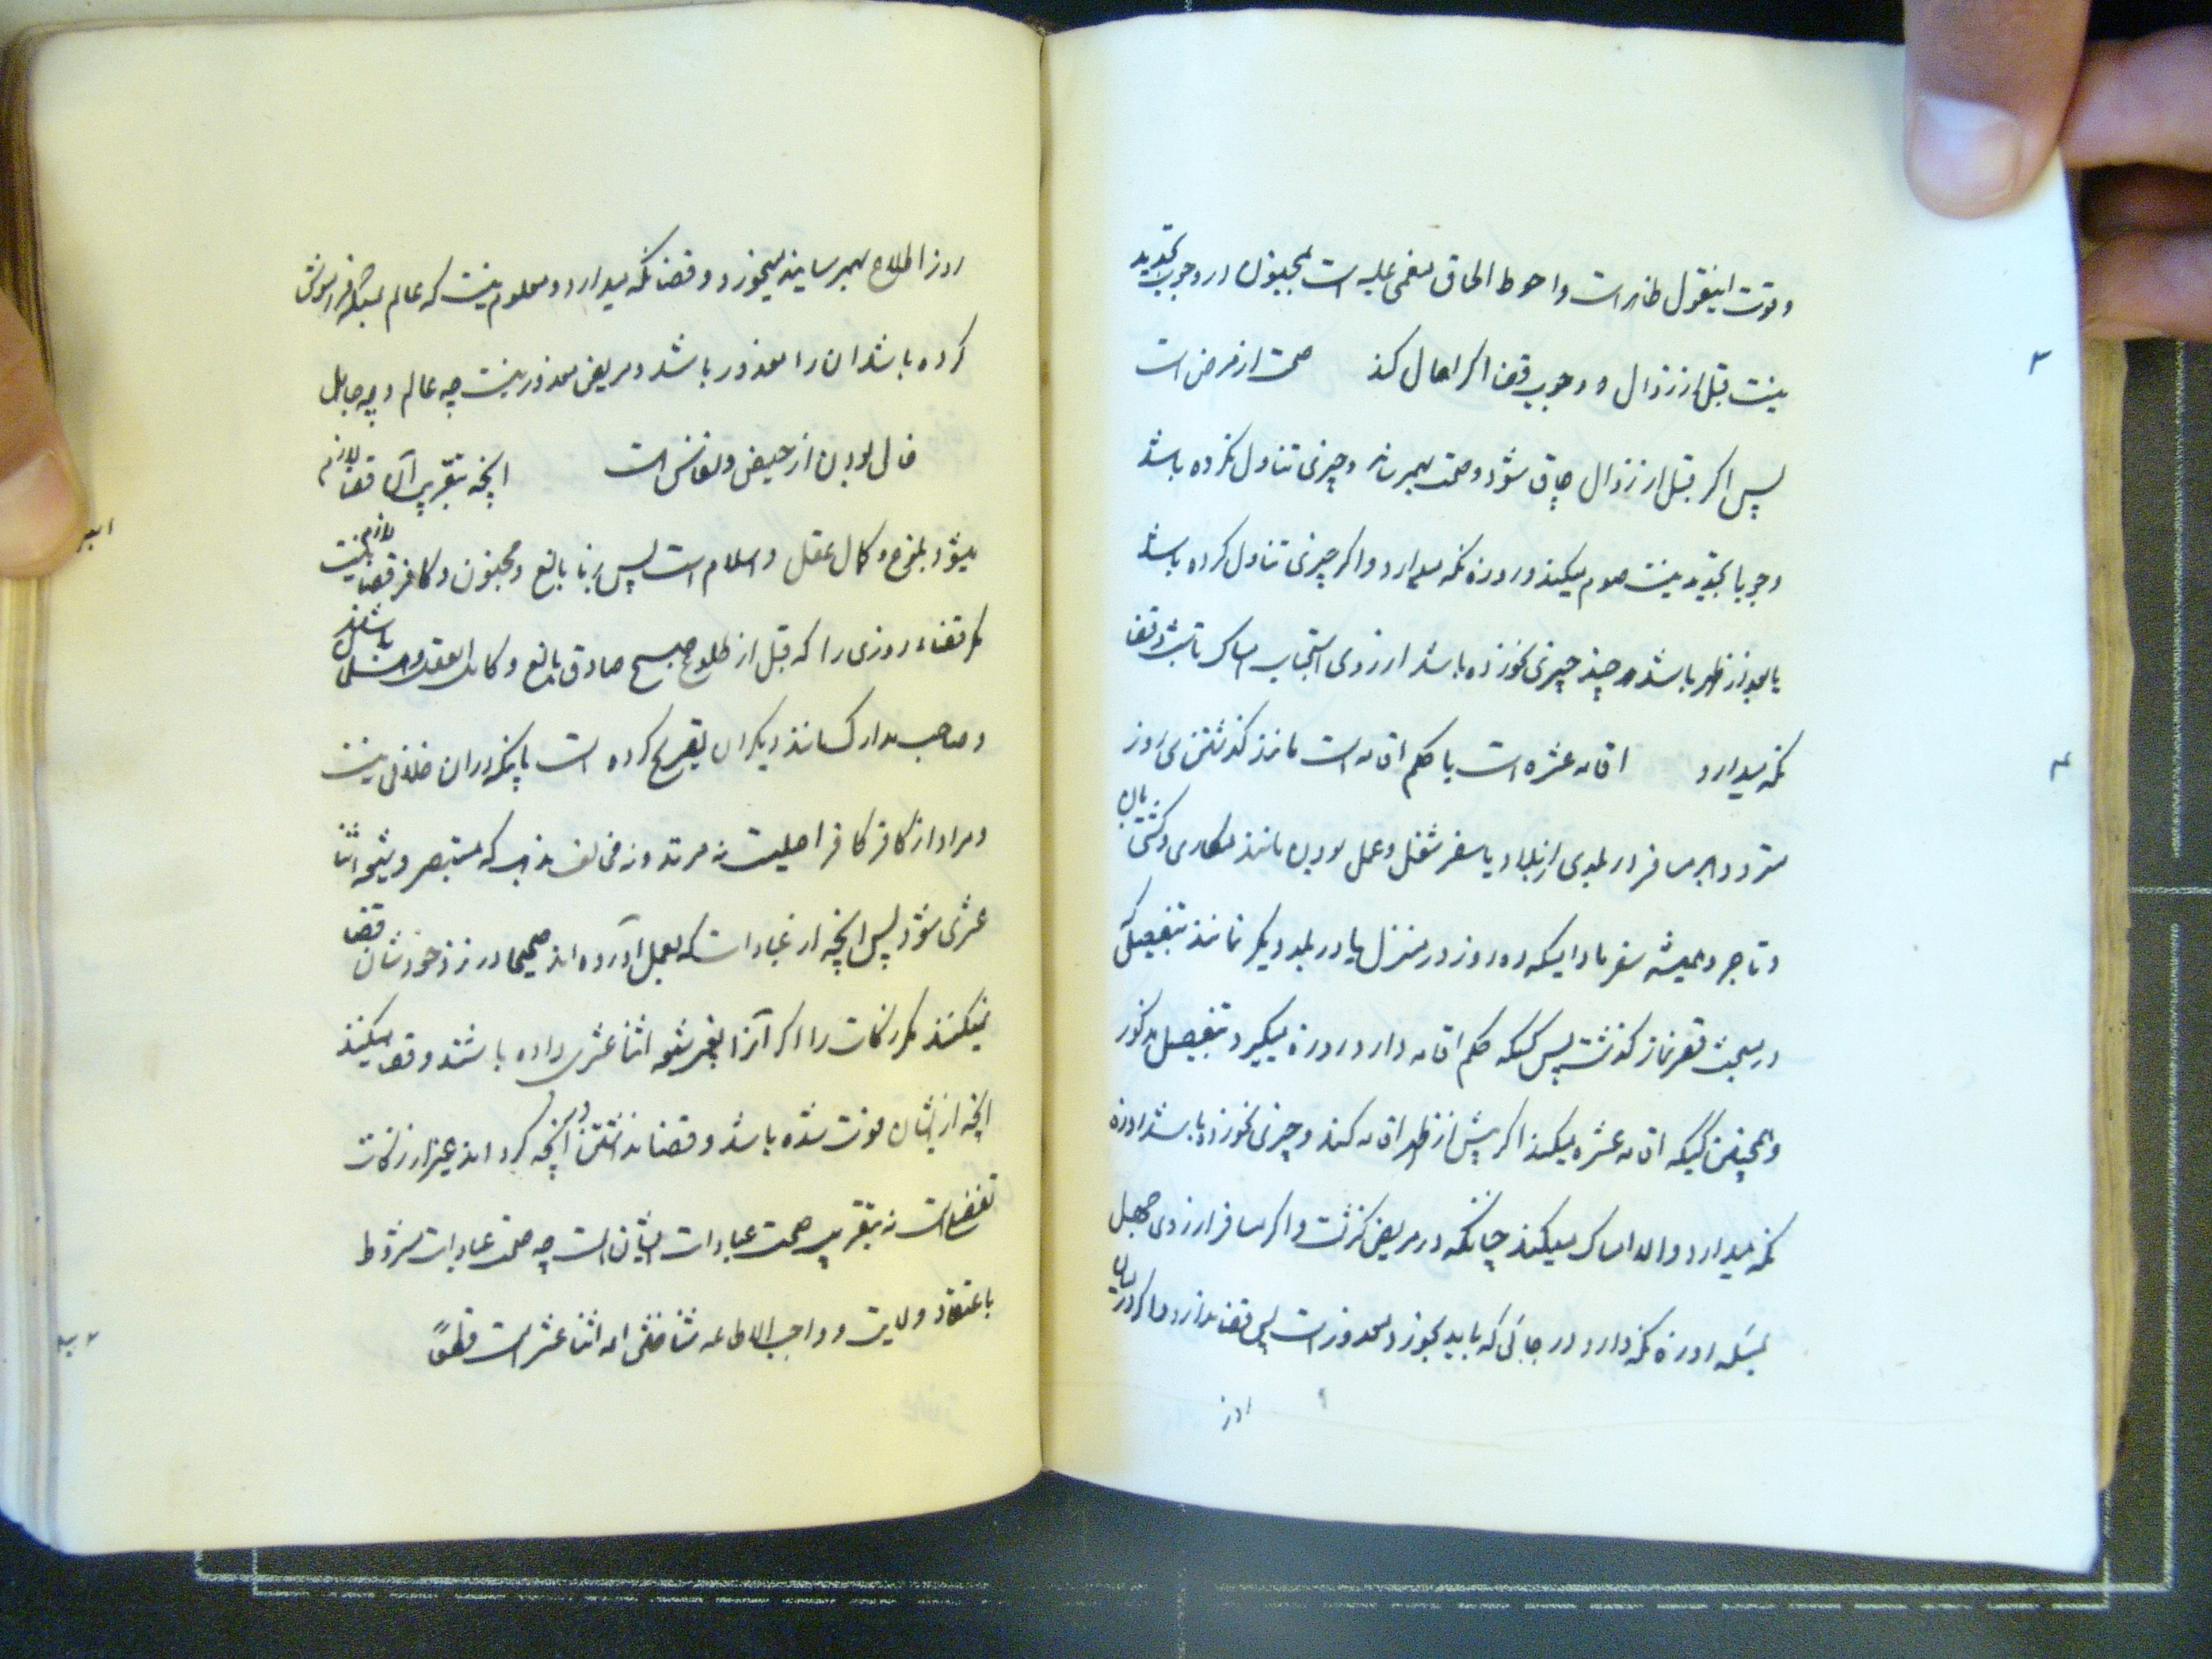 و قوت اینقول ظاهر است و احوط الحاق مغمی علیه است بمجنون در وجوب تجدید
نیت قبل از زوال و وجوب قضا اگر اهمال کند صحت از مرض است
۳
پس اگر قبل از زوال چاق شود و صحت بهمرساند و چیزی تناول نکرده باشد
وجوبا تجدید نیت صوم میکند و روزه نگه میدارد و اگر چیزی تناول کرده باشد
یا بعد از ظهر باشد هر چند چیزی نخورده باشد از روی استحباب امساک باشد و قضا
نگه میدارد اقامه عشره است یا حکم اقامه است مانند گذشتن سی روز
۴
متردد بر مسافر در بلدی از بلاد یا سفر شغل و عمل بودن مانند مکاری و کشتی بان
و تاجر و همیشه سفر مادامیکه ده روز در منزل یا در بلد دیگر نمانند بتفصیلی که
در مبحث قصر نماز گذشت پس کسیکه حکم اقامه دارد روزه میگیرد بتفصیل مذکور
و همچنین کسیکه اقامه عشره میکند اگر پیش از ظهر اقامه کند و چیزی نخورده باشد روزه
نگه میدارد و الا امساک میکند چنانکه در مریض گذشت و اگر مسافر از روی جهل
بمسئله روزه نگه دارد در جائی که باید بخورد معذور است پس قضا ندارد و اگر در میان
روز
روز اطلاع بهمرساند میخورد و قضا نگه میدارد و معلوم نیست که عالم بمسئله فراموش
کرده باشد آن را معذور باشد و مریض معذور نیست چه عالم و چه جاهل
خالی بودن از حیض و نفاس است آنچه بتقریب آن قضا لازم
میشود بلوغ و کمال عقل و اسلام است پس بر نابالغ و مجنون و کافر قضا لازم نیست
مگر قضاء روزی را که قبل از طلوع صبح صادق بالغ و کامل العقل و مسلمان باشند
و صاحب مدارک مانند دیگران تصریح کرده است باینکه در آن خلافی نیست
و مراد از کافر کافر اصلیست نه مرتد و نه مخالف مذهب که مستبصر و شیعه اثنا
عشری شود پس آنچه از عبادات که بعمل آورده اند صحیحا در نزد خودشان قضا
نمیکنند مگر زکات را اگر آنرا بغیر شیعه اثنا عشری داده باشند و قضا میکنند
آنچه از ایشان فوت شده باشد و قضا نداشتن در آنچه کرده اند غیر از زکات
تفضل است نه بتقریب صحت عبادات ایشان است چه صحت عبادات مشروط
باعتقاد ولایت و واجب الاطاعه شناختن ائمه اثنا عشر است قطعاً